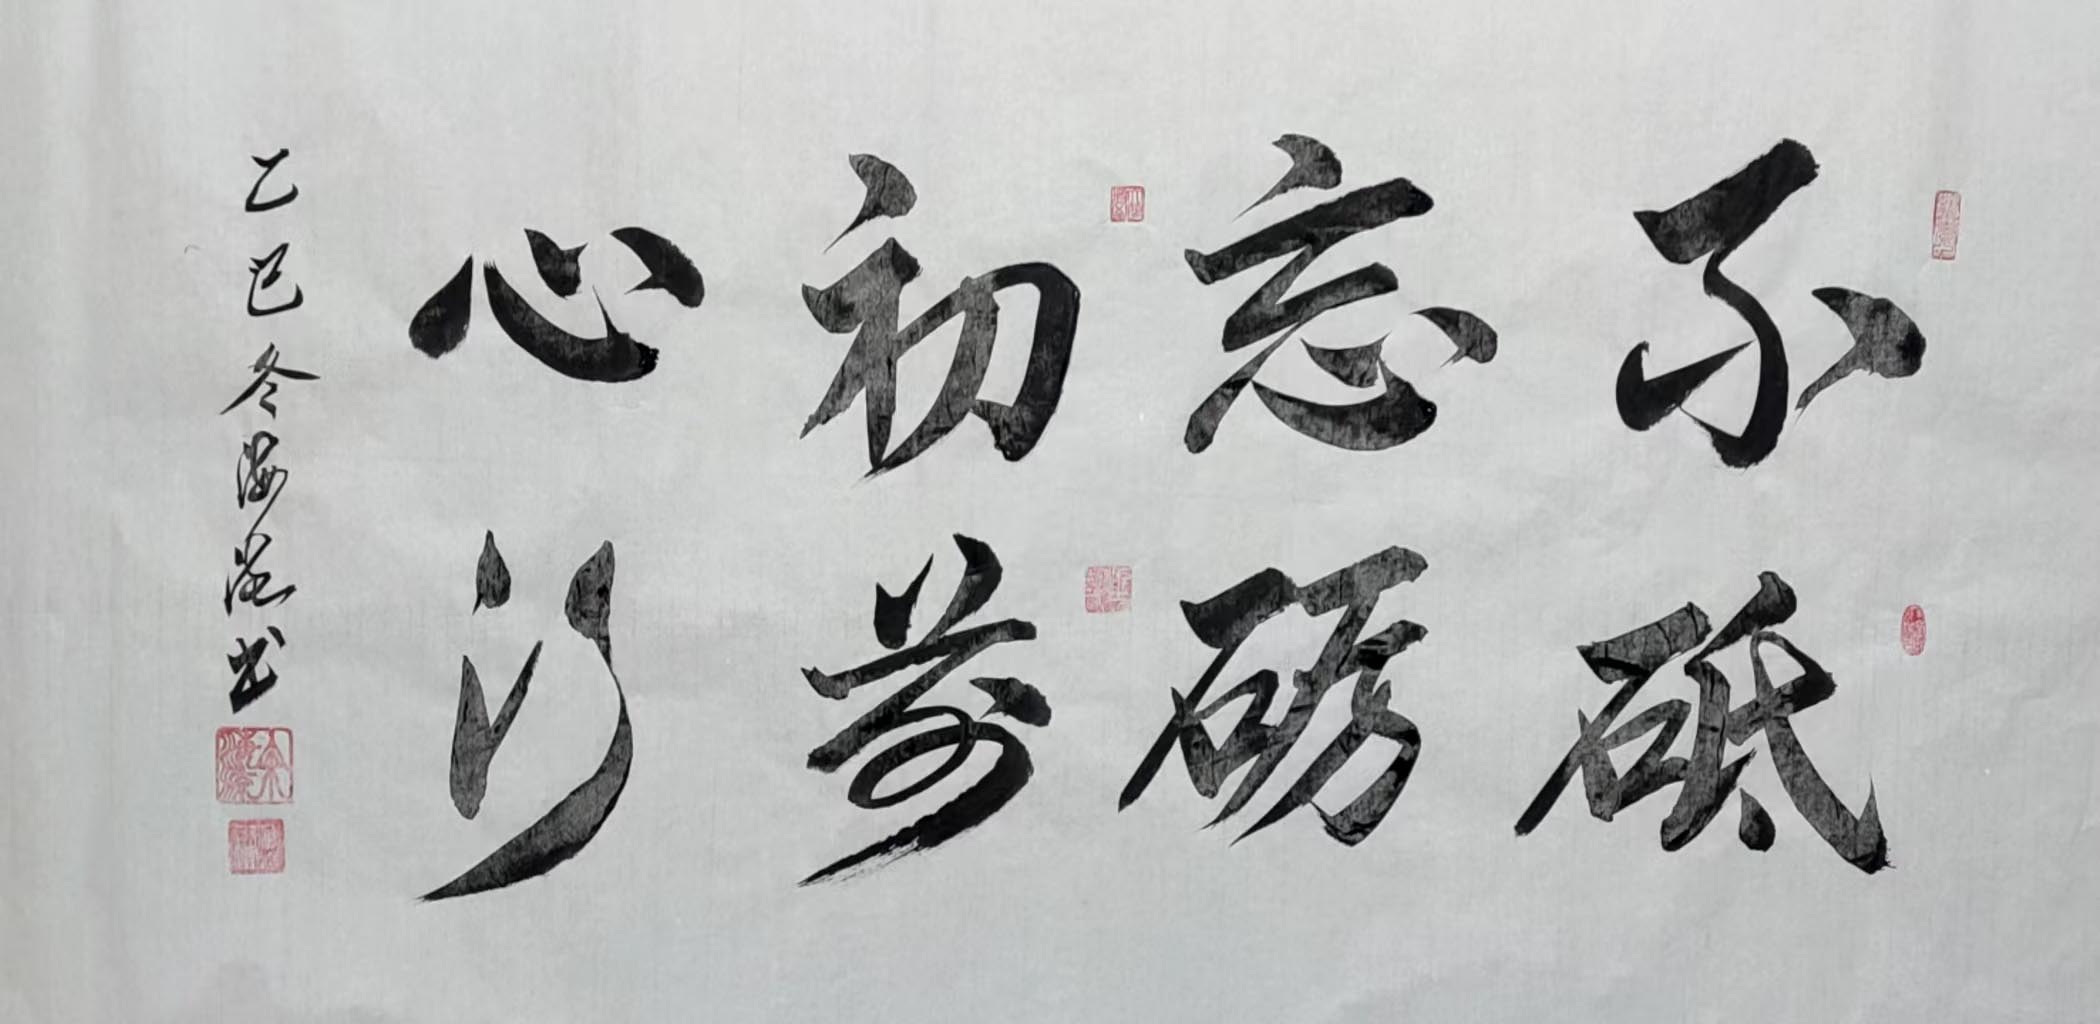 不忘初心
砥砺前行
乙巳冬海滨书